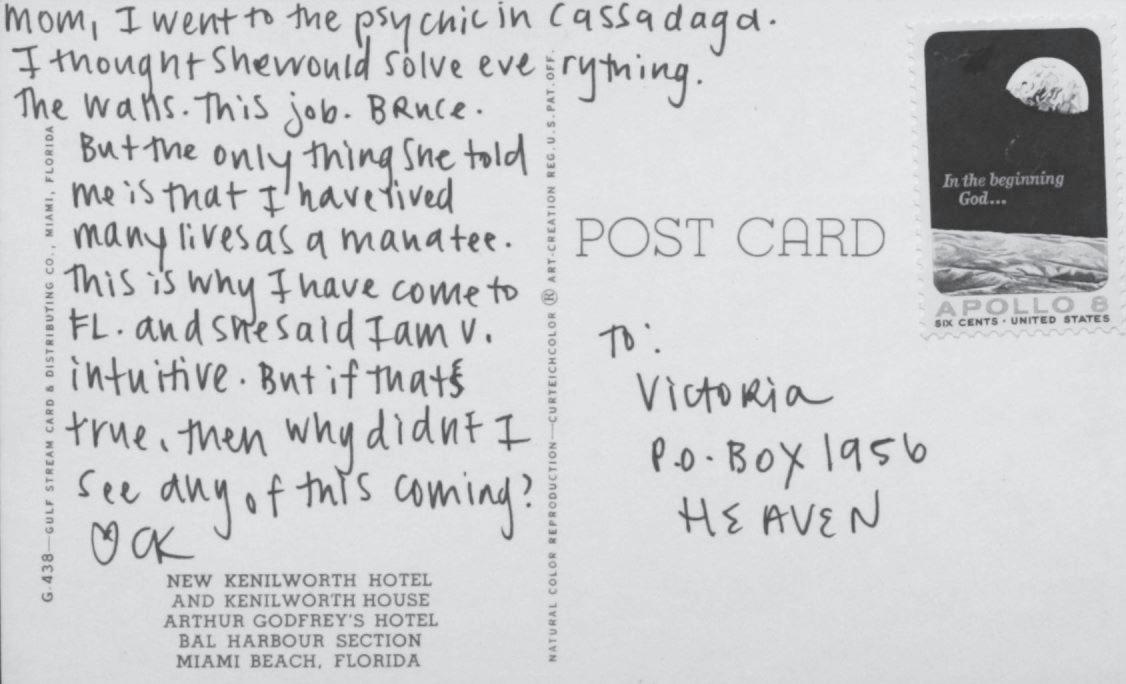 Mom, I went to the psychic in Cassadaga.
I thought she would solve everything.
The walls. This job. Bruce.
But the only thing she told
me is that I have lived
many lives as a manatee.
This is why I have come to
FL. and she said I am v.
intuitive. But if thats
true, then why didnt I
see any of this coming?
♡ CK
NEW KENILWORTH HOTEL
AND KENILWORTH HOUSE
ARTHUR GODFREY'S HOTEL
BAL HARBOUR SECTION
MIAMI BEACH, FLORIDA
G-438—GULF STREAM CARD & DISTRIBUTING CO., MIAMI, FLORIDA
NATURAL COLOR REPRODUCTION—CURTEICHCOLOR ® ART-CREATION REG. U.S. PAT. OFF.
POST CARD
In the beginning
God...
APOLLO 8
SIX CENTS · UNITED STATES
To:
Victoria
P.O. BOX 1956
HEAVEN